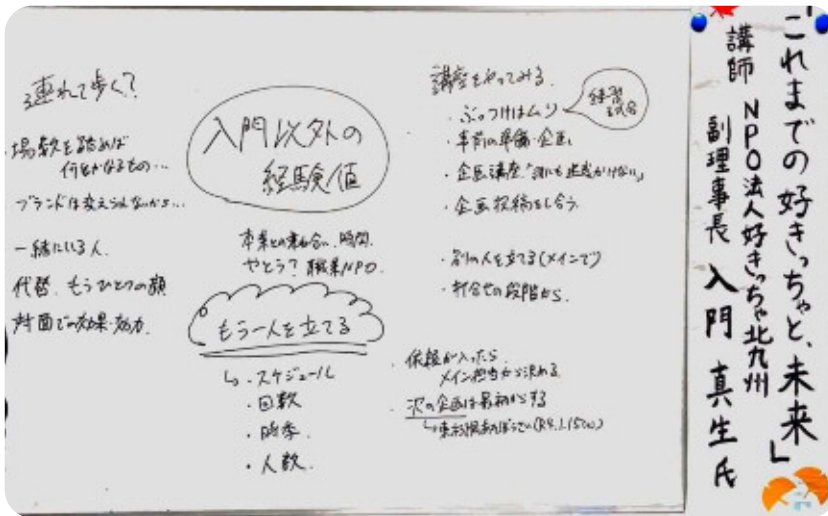 「これまでの好きっちゃと、未来」
講師 NPO法人好きっちゃ北九州
副理事長 入門 真生 氏
連れて歩く?
場数を踏めば
何とかなるもの…
ブランドは変えられないから…
一緒にいる人
代替、もうひとつの顔
対面での効果・効力
入門以外の
経験値
本業との兼ね合い、時間
やとう? 職業NPO
もう一人を立てる
↳・スケジュール
・回数
・時季
・人数
講座をやってみる
・ぶっつけはムリ
練習
試合
・事前の準備・企画
・企画講座「誰にも迷惑かけない」
・企画投稿をし合う
・別の人を立てる(メインで)
・打合せの段階から
・依頼が入ったら
メイン担当から決める
・次の企画は最初からする
(R4.1.15(土))